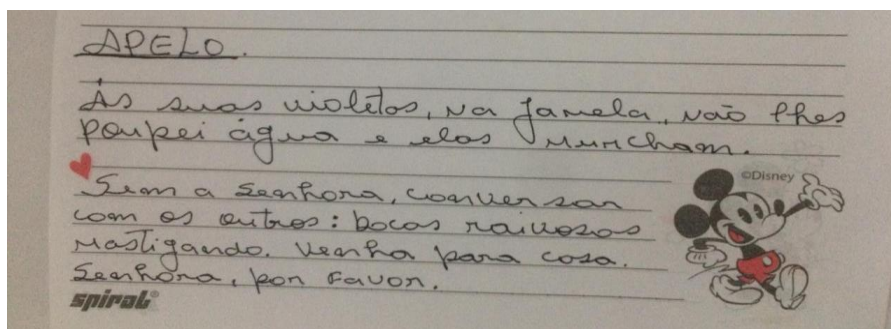 APELO.
Às suas violetas, na janela, não lhes
poupei água e elas murcham.
©Disney
Sem a Senhora, conversar
com os outros: bocas raivosas
mastigando. Venha para casa.
Senhora, por favor.
spiral®